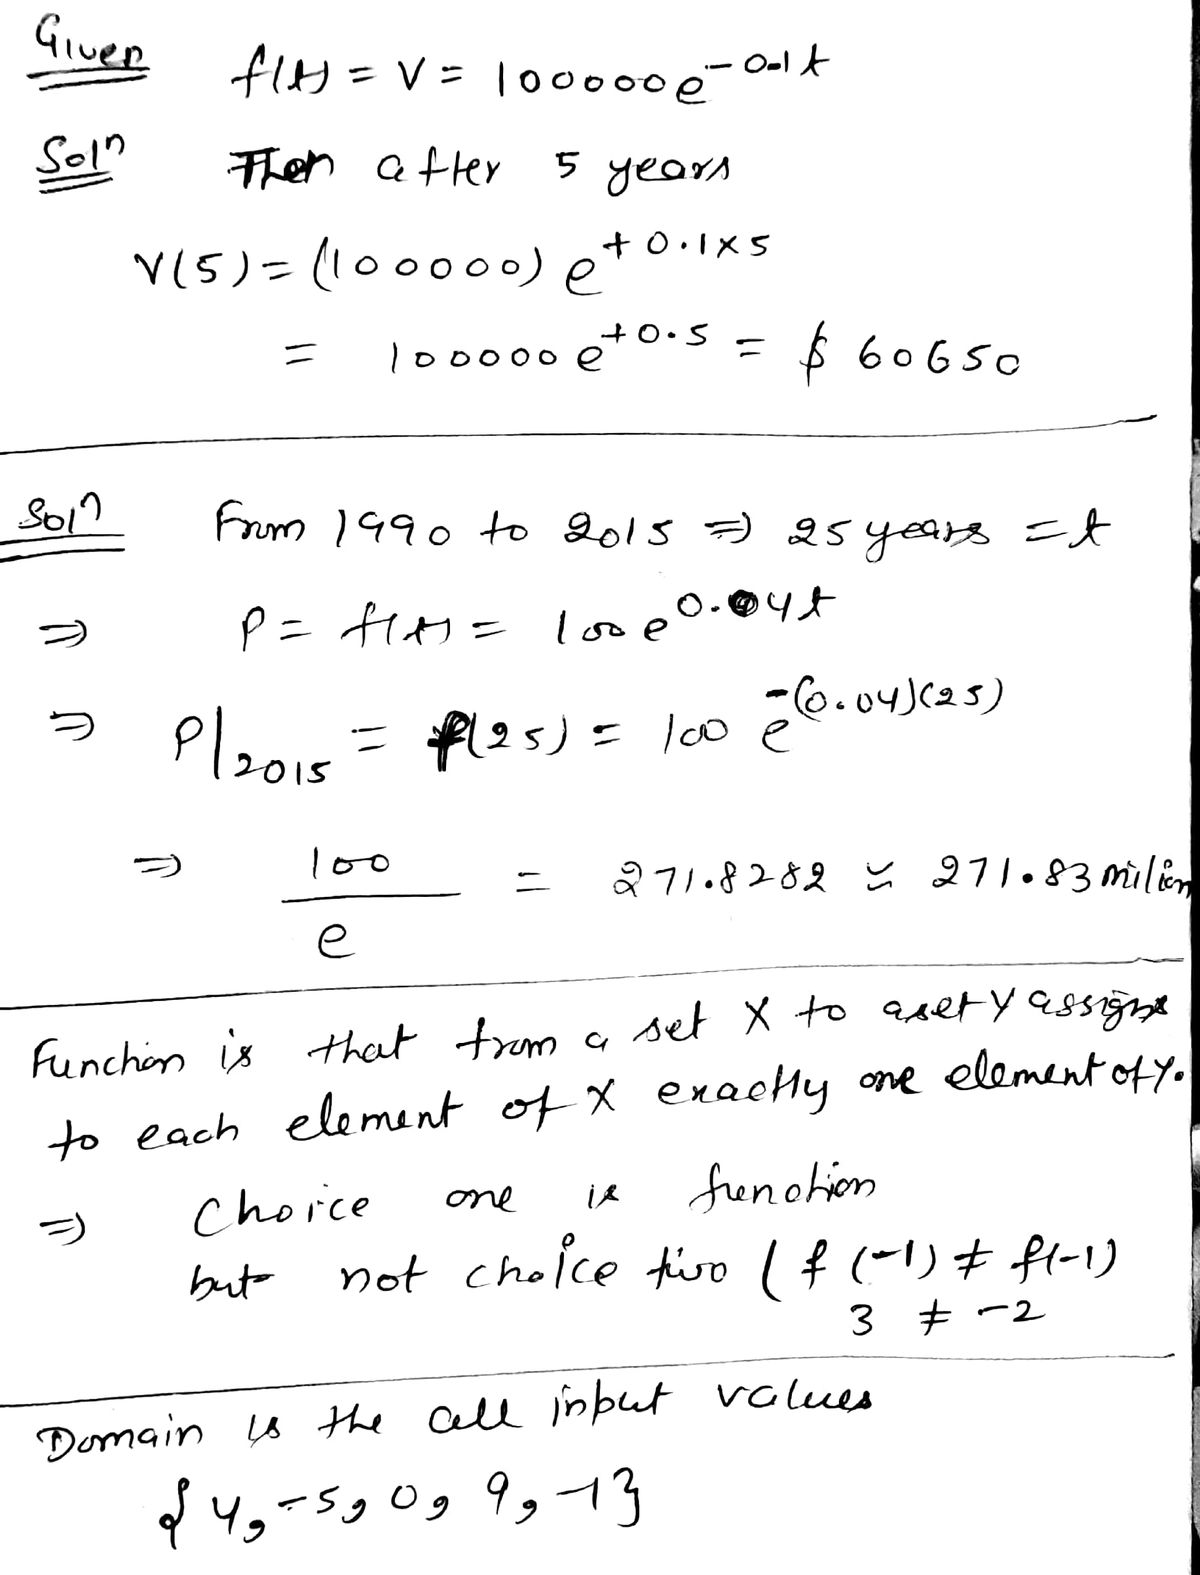 Given f(t) = V = 100000 e^-0.1t
Soln Then after 5 years
V(5) = (100000) e^+0.1×5
= 100000 e^+0.5 = $ 60650
Soln From 1990 to 2015 ⇒ 25 years = t
⇒ P = f(t) = 100 e^0.04t
⇒ P|2015 = f(25) = 100 e^-(0.04)(25)
⇒ 100/e = 271.8282 ≈ 271.83 milion
Function is that from a set X to a set Y assigns
to each element of X exactly one element of Y.
⇒ Choice one is function
but not choice two ( f (-1) ≠ f(-1)
3 ≠ -2
Domain is the all input values
{4, -5, 0, 9, -1}